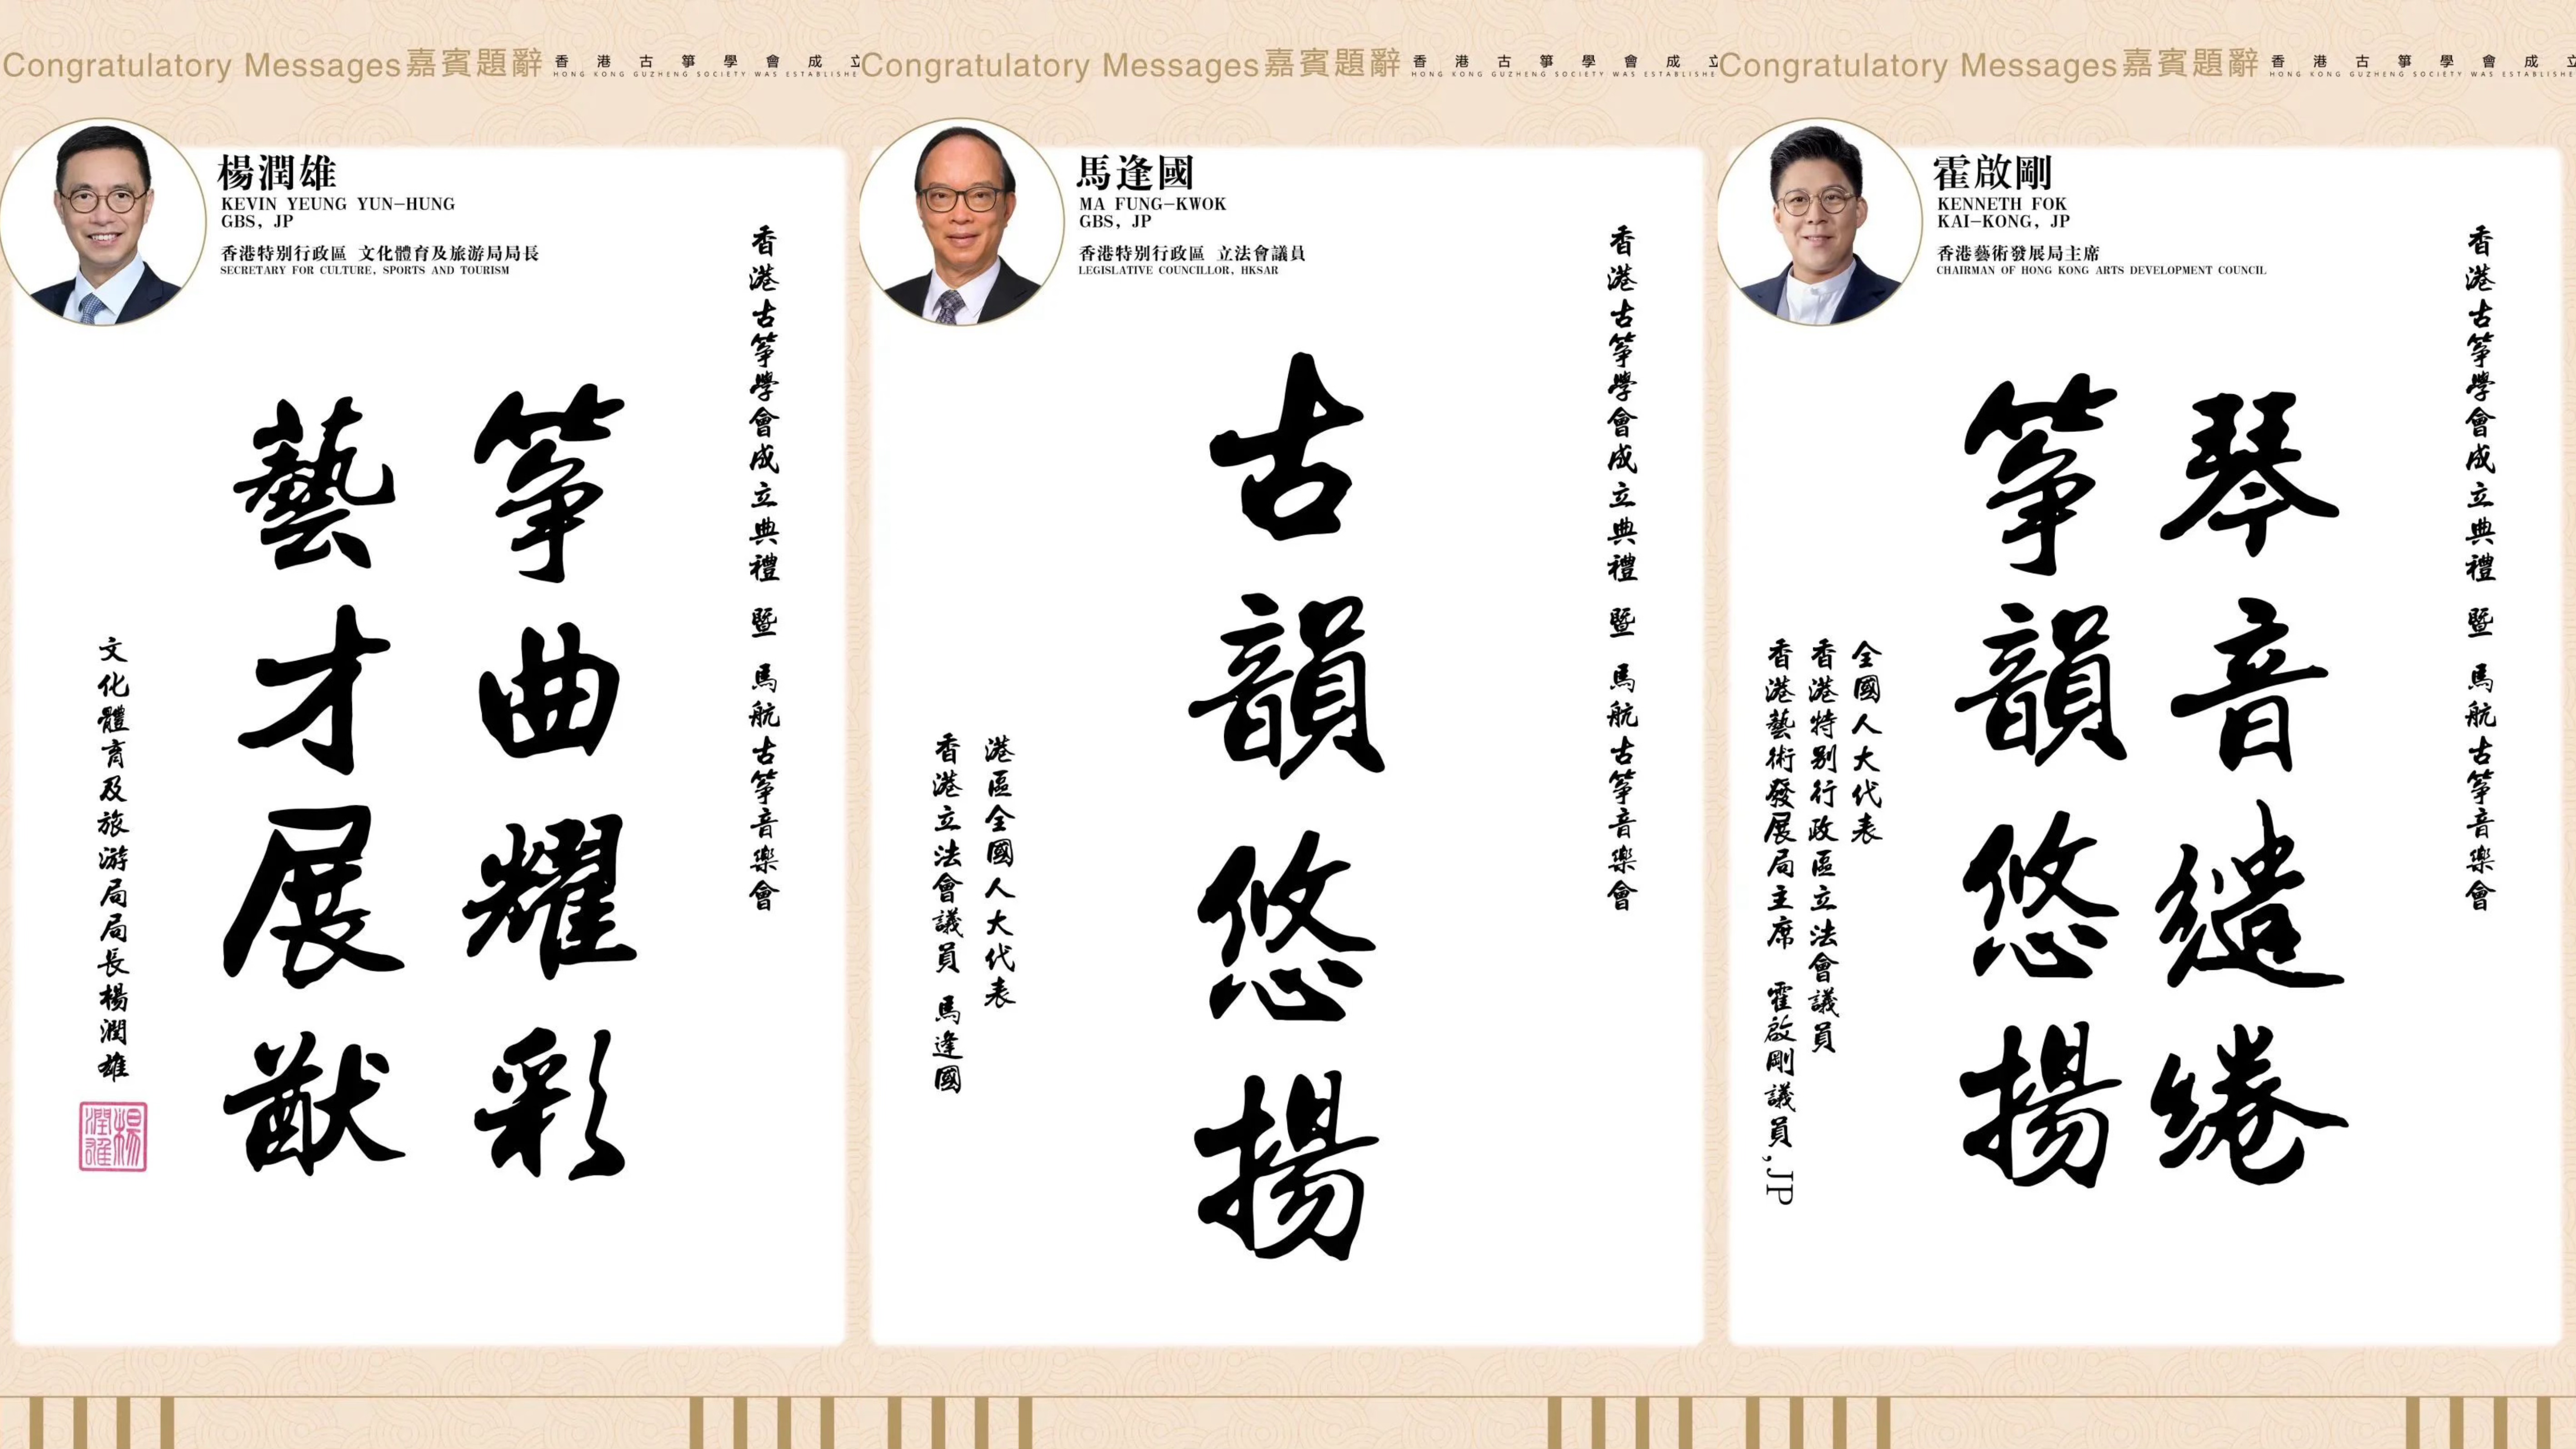 Congratulatory Messages嘉賓題辭 香港古箏學會成立
HONG KONG GUZHENG SOCIETY WAS ESTABLISHE
楊潤雄
KEVIN YEUNG YUN-HUNG
GBS, JP
香港特別行政區 文化體育及旅游局局長
SECRETARY FOR CULTURE, SPORTS AND TOURISM
香港古箏學會成立典禮 暨 馬航古箏音樂會
箏曲耀彩
藝才展猷
文化體育及旅游局局長楊潤雄
楊潤雄
Congratulatory Messages嘉賓題辭 香港古箏學會成立
HONG KONG GUZHENG SOCIETY WAS ESTABLISHE
馬逢國
MA FUNG-KWOK
GBS, JP
香港特別行政區 立法會議員
LEGISLATIVE COUNCILLOR, HKSAR
香港古箏學會成立典禮 暨 馬航古箏音樂會
古韻悠揚
港區全國人大代表
香港立法會議員 馬逢國
Congratulatory Messages嘉賓題辭 香港古箏學會成立
HONG KONG GUZHENG SOCIETY WAS ESTABLISHE
霍啟剛
KENNETH FOK
KAI-KONG, JP
香港藝術發展局主席
CHAIRMAN OF HONG KONG ARTS DEVELOPMENT COUNCIL
香港古箏學會成立典禮 暨 馬航古箏音樂會
琴音繾綣
箏韻悠揚
全國人大代表
香港特別行政區立法會議員
香港藝術發展局主席 霍啟剛議員,JP